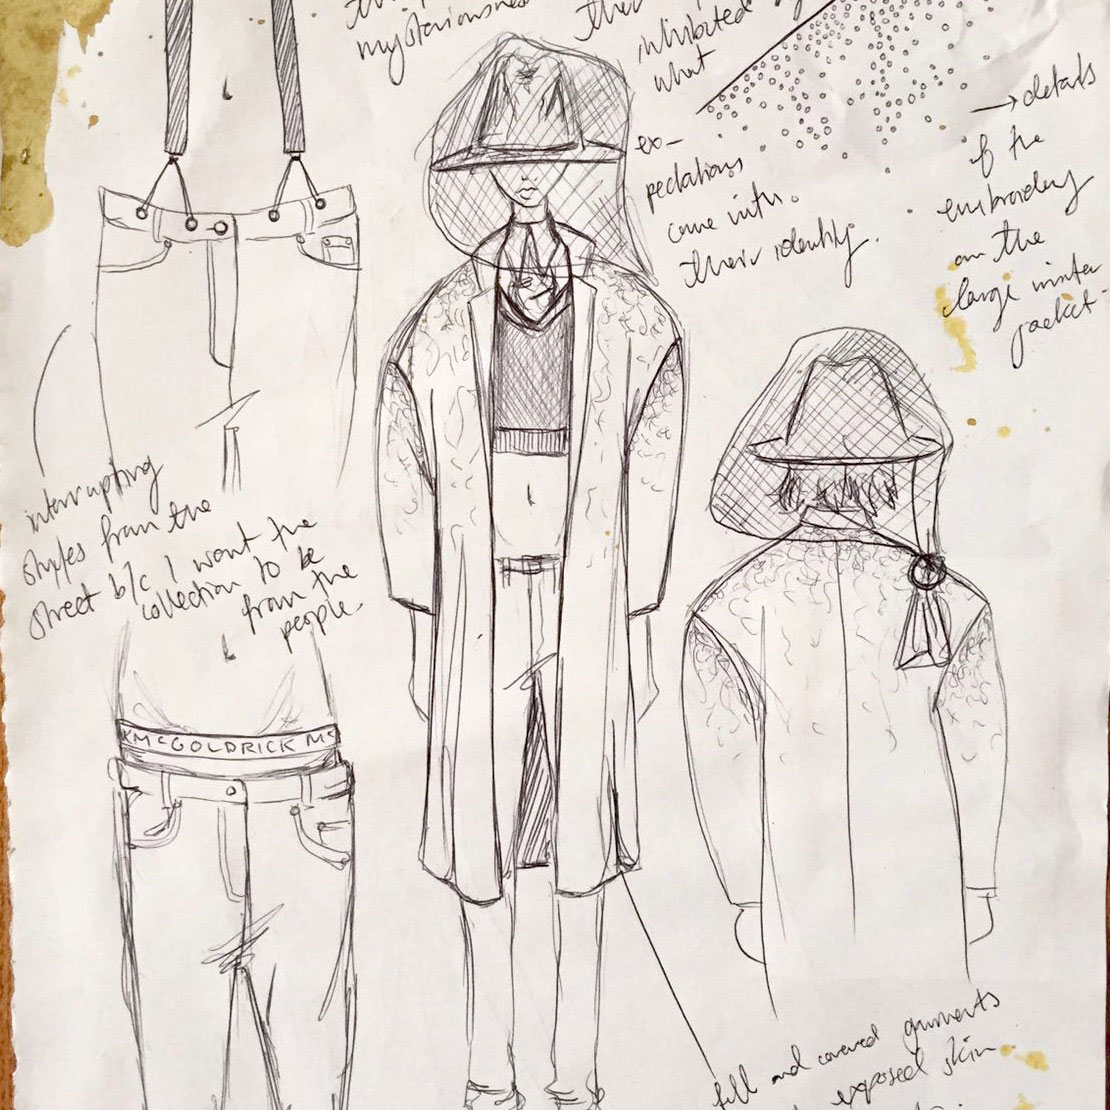 mysteriousness
inhibited by
what
ex-
pectations
come with
their identity.
→ details
of the
embroidery
on the
large winter
jacket.
interrupting
styles from the
street b/c I want the
collection to be
from the
people.
KMCGOLDRICK MC
full and covered garments
exposed skin